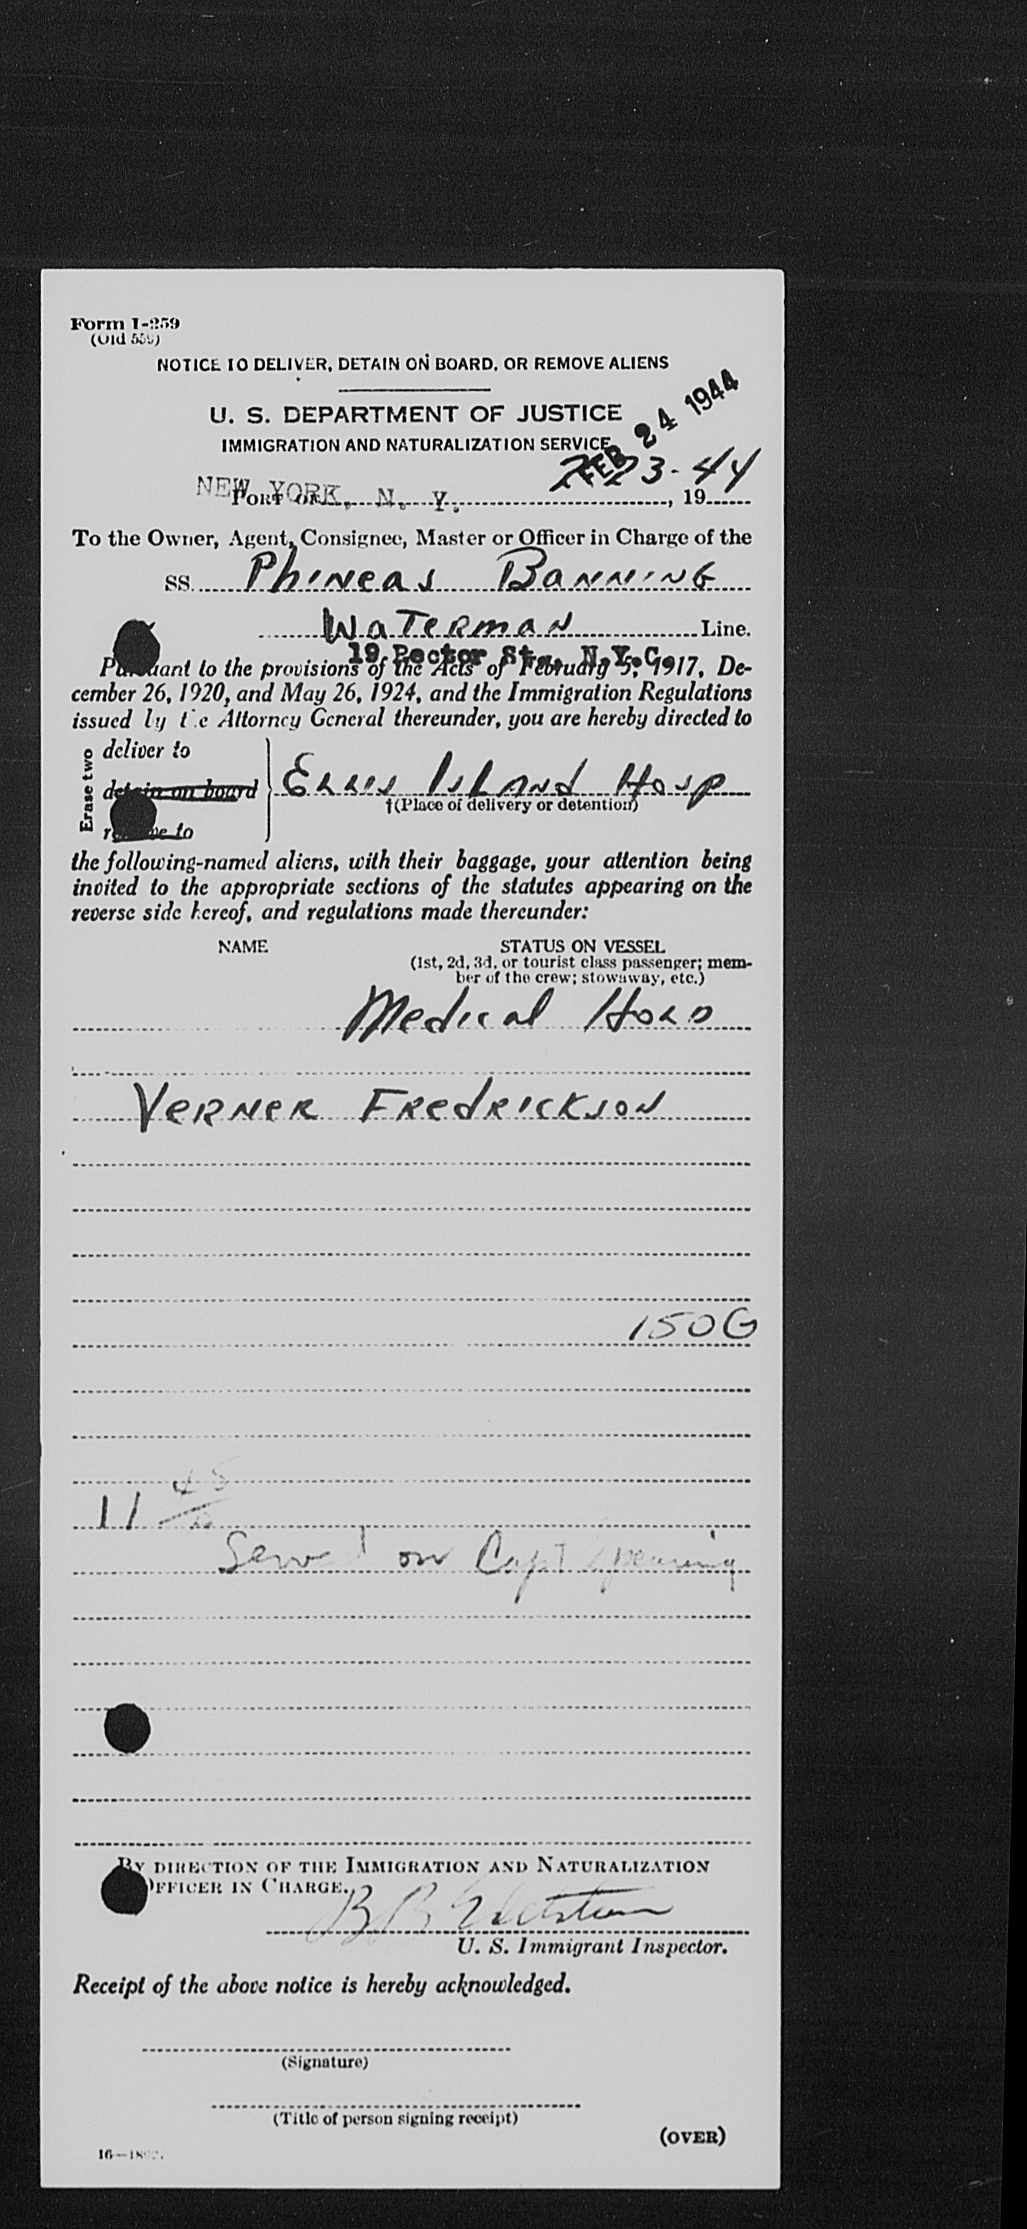 Form I-259
(Old 559)
NOTICE TO DELIVER, DETAIN ON BOARD, OR REMOVE ALIENS
U. S. DEPARTMENT OF JUSTICE
IMMIGRATION AND NATURALIZATION SERVICE
FEB 24 1944
NEW YORK, N. Y.
PORT OF
2-23-44
, 19
To the Owner, Agent, Consignee, Master or Officer in Charge of the
SS. Phineas Banning
Waterman Line.
19 Rector St., N.Y.C.
Pursuant to the provisions of the Acts of February 5, 1917, De-
cember 26, 1920, and May 26, 1924, and the Immigration Regulations
issued by the Attorney General thereunder, you are hereby directed to
Erase two
deliver to
detain on board
remove to
Ellis Island Hosp
†(Place of delivery or detention)
the following-named aliens, with their baggage, your attention being
invited to the appropriate sections of the statutes appearing on the
reverse side hereof, and regulations made thereunder:
NAME STATUS ON VESSEL
(1st, 2d, 3d, or tourist class passenger; mem-
ber of the crew; stowaway, etc.)
Medical Hold
Verner Fredrickson
150G
11 45
Served on Capt Spearing
BY DIRECTION OF THE IMMIGRATION AND NATURALIZATION
OFFICER IN CHARGE.
B R
U. S. Immigrant Inspector.
Receipt of the above notice is hereby acknowledged.
(Signature)
(Title of person signing receipt)
(OVER)